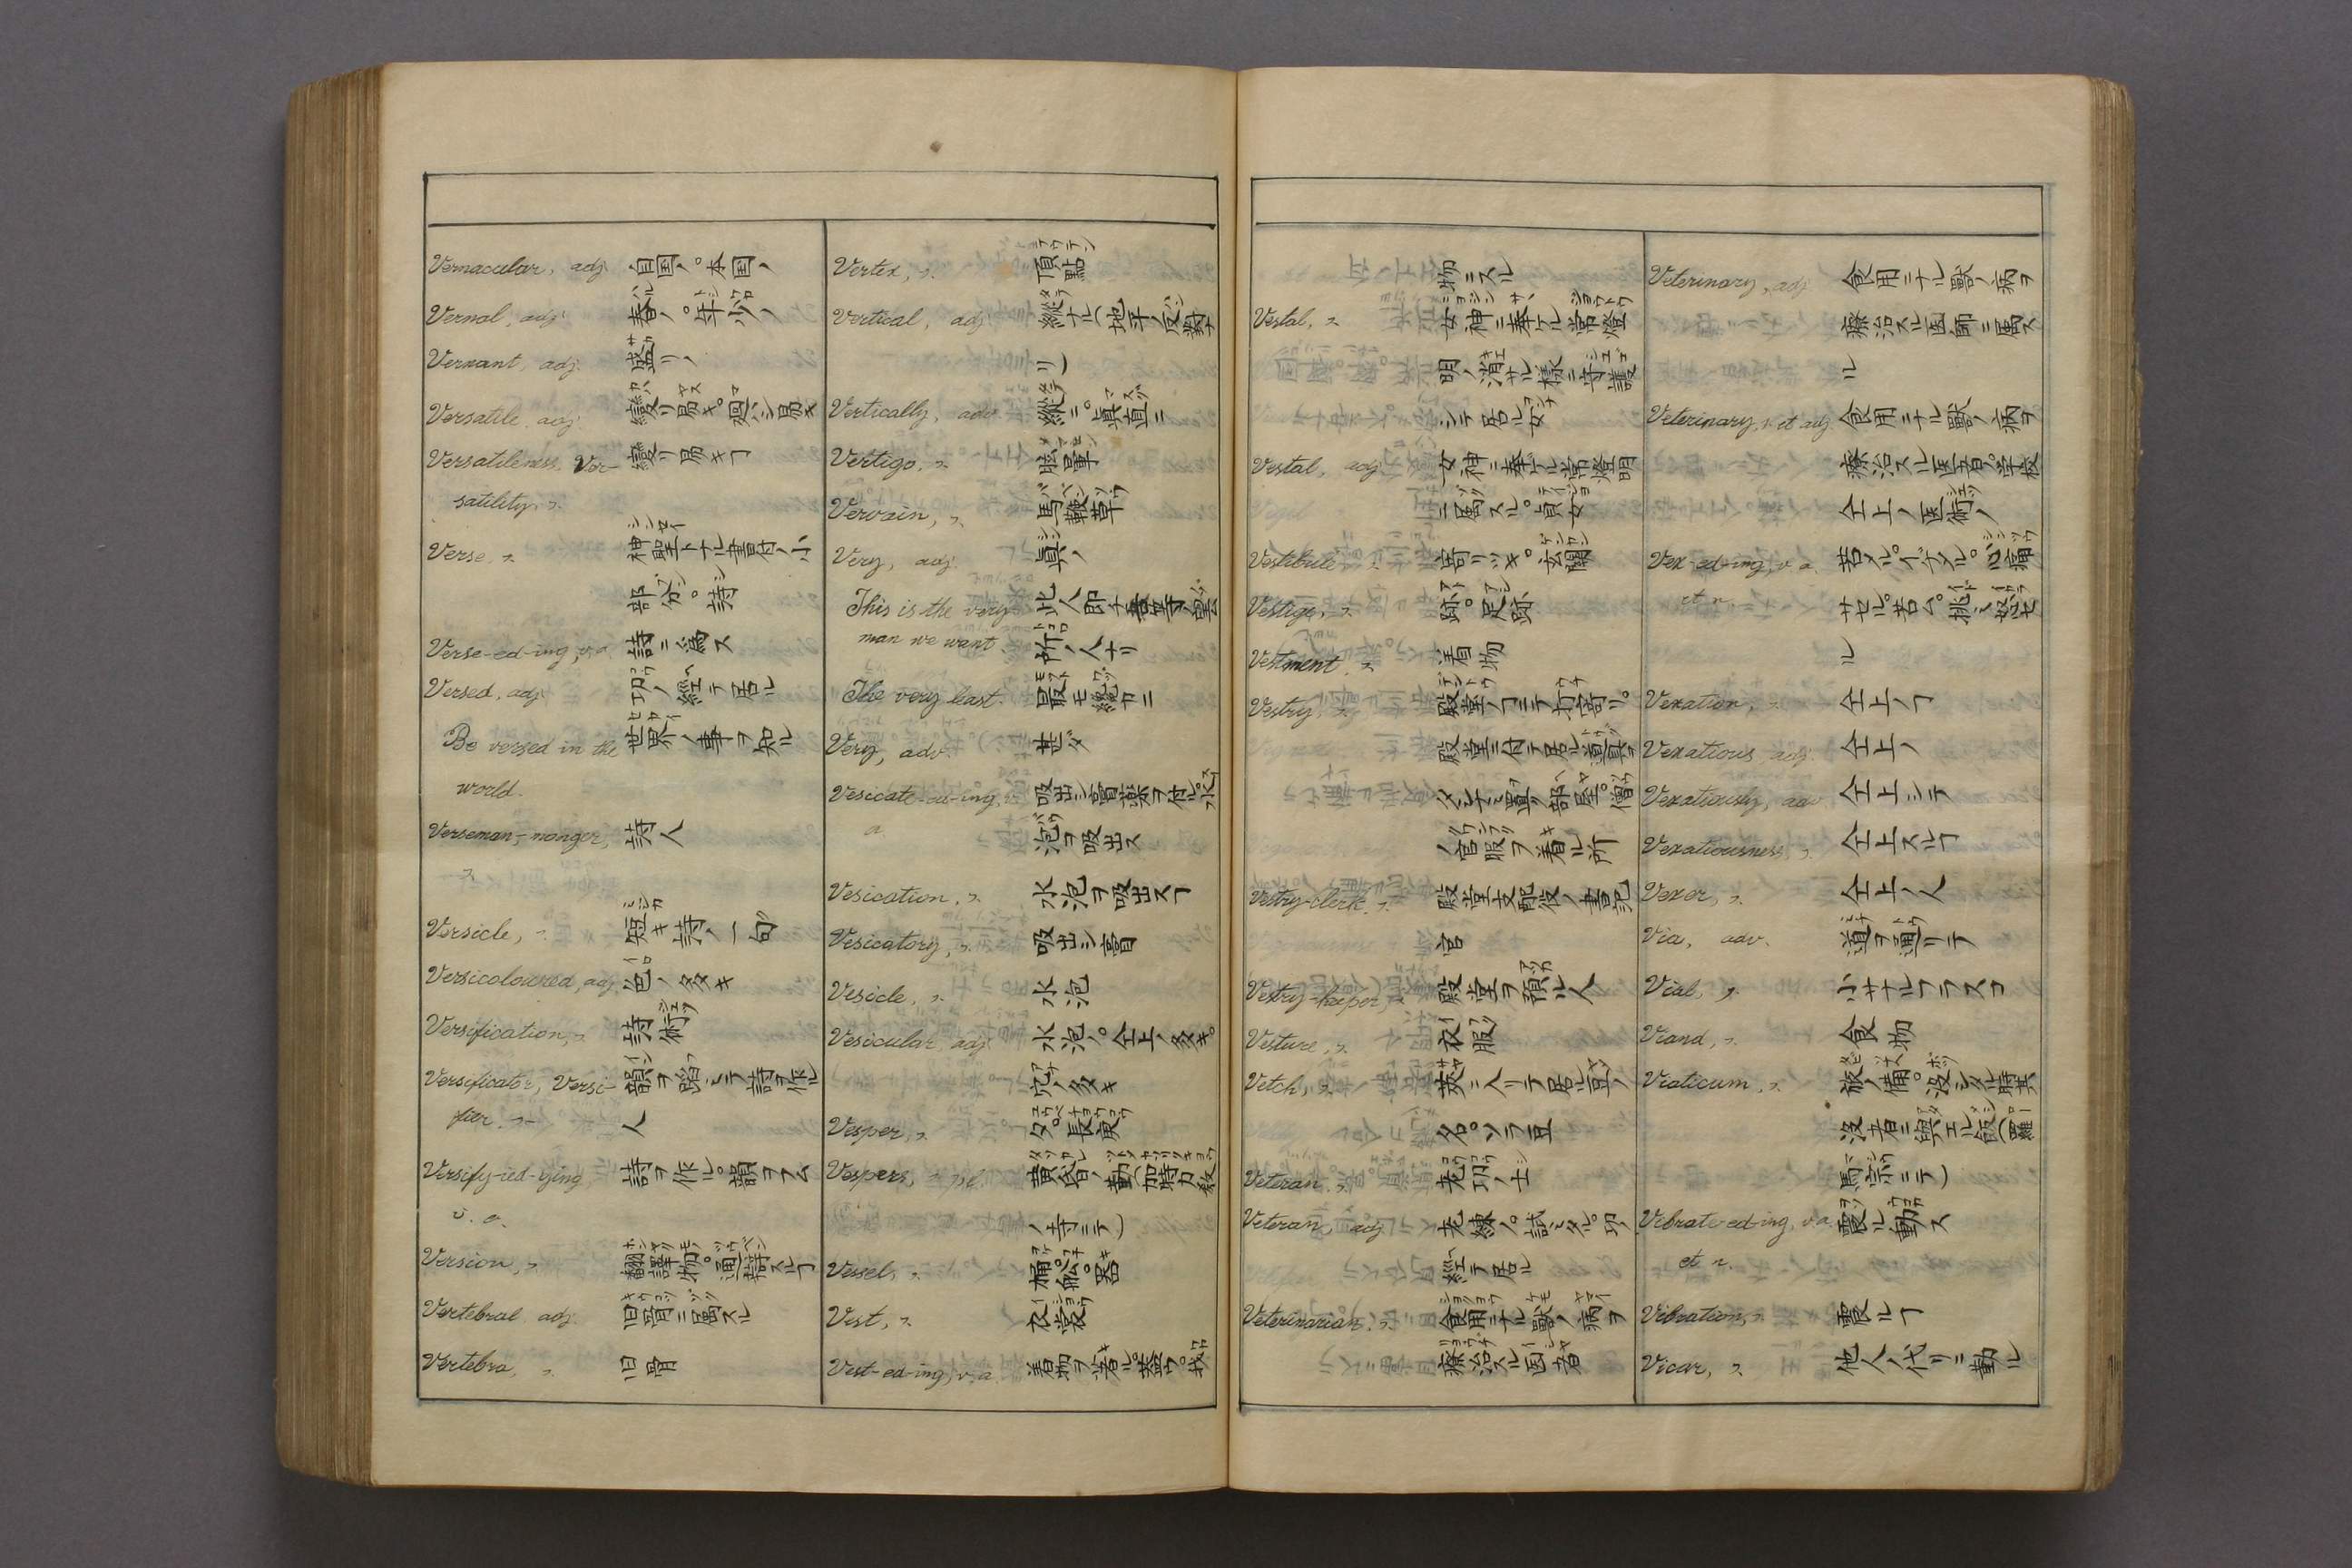 Vernacular, adj. 自国ノ。本国ノ
Vernal, adj. 春ノ。年少ノ
Vernant, adj. 盛リノ
Versatile, adj. 變リ易キ。廻シ易キ
Versatileness, Ver- 變リ易キヿ
satility, n.
Verse, n. 神聖トナル書付ノ小
部分。詩
Verse-ed-ing, v.a. 詩ニ為ス
Versed, adj. 功ノ經テ居ル
Be versed in the 世界ノ事ヲ知ル
world.
Verseman,-monger, 詩人
n.
Versicle, n. 短キ詩ノ一句
Versicoloured, adj. 色ノ多キ
Versification, n. 詩術
Versificator, Versi- 韻ヲ蹈ミテ詩ヲ作ル
fier. n. 人
Versify-ied-ying 詩ヲ作ル。韻ヲフム
v. a.
Version, n. 翻譯物。通辞スルヿ
Vertebral, adj. 旧骨ニ属スル
Vertebra, n. 旧骨
Vertex, n. 頂點
Vertical, adj. 縱ナル(地平ノ反對
ナリ)
Vertically, adv. 縱ニ。眞直ニ
Vertigo, n. 眩暈
Vervain, n. 馬鞭草
Very, adj. 眞ノ
This is the very 此人即チ吾等ノ望ム
man we want. 所ノ人ナリ
The very last. 最モ終ニ
Very, adv. 甚ダ
Vesicate-ed-ing, v. 吸出シ膏薬ヲ付ル。水
a. 泡ヲ吸出ス
Vesication, n. 水泡ヲ吸出スヿ
Vesicatory, n. 吸出シ膏
Vesicle, n. 水泡
Vesicular, adj. 水泡ノ。仝上ノ多キ。
穴ノ多キ
Vesper, n. 夕。長庚
Vespers, n. pl. 黄昏ノ勤(加特力教
ノ寺ニテ)
Vessel, n. 桶。舩。器
Vest, n. 衣裳
Vest-ed-ing, v.a. 着物ヲ着ル。蓋フ。我
物ニスル
Vestal, n. 女神ニ奉ケル常燈
明ノ消サル様ニ守護
シテ居ル女
Vestal, adj. 女神ニ奉ケル常燈明
ニ属スル。貞女
Vestibule, n. 寄リツキ。玄關
Vestige, n. 跡。足跡
Vestment, n. 着物
Vestry, n. 殿堂ノコニテ打寄リ。
殿堂ニ付テ居ル道具ヲ
置ク部屋。僧
ノ官服ヲ着ル所
Vestry-clerk, n. 殿堂支配役ノ書記
官
Vestry-keeper, n. 殿堂ヲ預ル人
Vesture, n. 衣服
Vetch, n. 莢ニ入リテ居ル豆ノ
名。ソラ豆
Veteran, n. 老功ノ士
Veteran, adj. 老練ノ。試ミタル。功ノ
經テ居ル
Veterinarian, n. 食用ニナル獸ノ病ヲ
療治スル医者
Veterinary, adj. 食用ニナル獸ノ病ヲ
療治スル医師ニ属ス
ル
Veterinary, n. et adj. 食用ニナル獸ノ病ヲ
療治スル医者ノ学校
仝上ノ医術ノ
Vex-ed-ing, v.a. 苦メル。イヂメル。心痛
et n. サセル。苦ム。挑ミ怒セ
ル
Vexation, n. 仝上ノヿ
Vexatious, adj. 仝上ノ
Vexatiously, adv. 仝上シテ
Vexatiousness, n. 仝上スルヿ
Vexer, n. 仝上ノ人
Via, adv. 道ヲ通リテ
Vial, n. 小サナルフラスコ
Viand, n. 食物
Viaticum, n. 旅ノ備。没シタル時其
没者ニ與エル飯(羅
馬宗ニテ)
Vibrate-ed-ing, v.a. 震ル動ス
et n.
Vibration, n. 震ルヿ
Vicar, n. 他人ノ代リニ勤ル